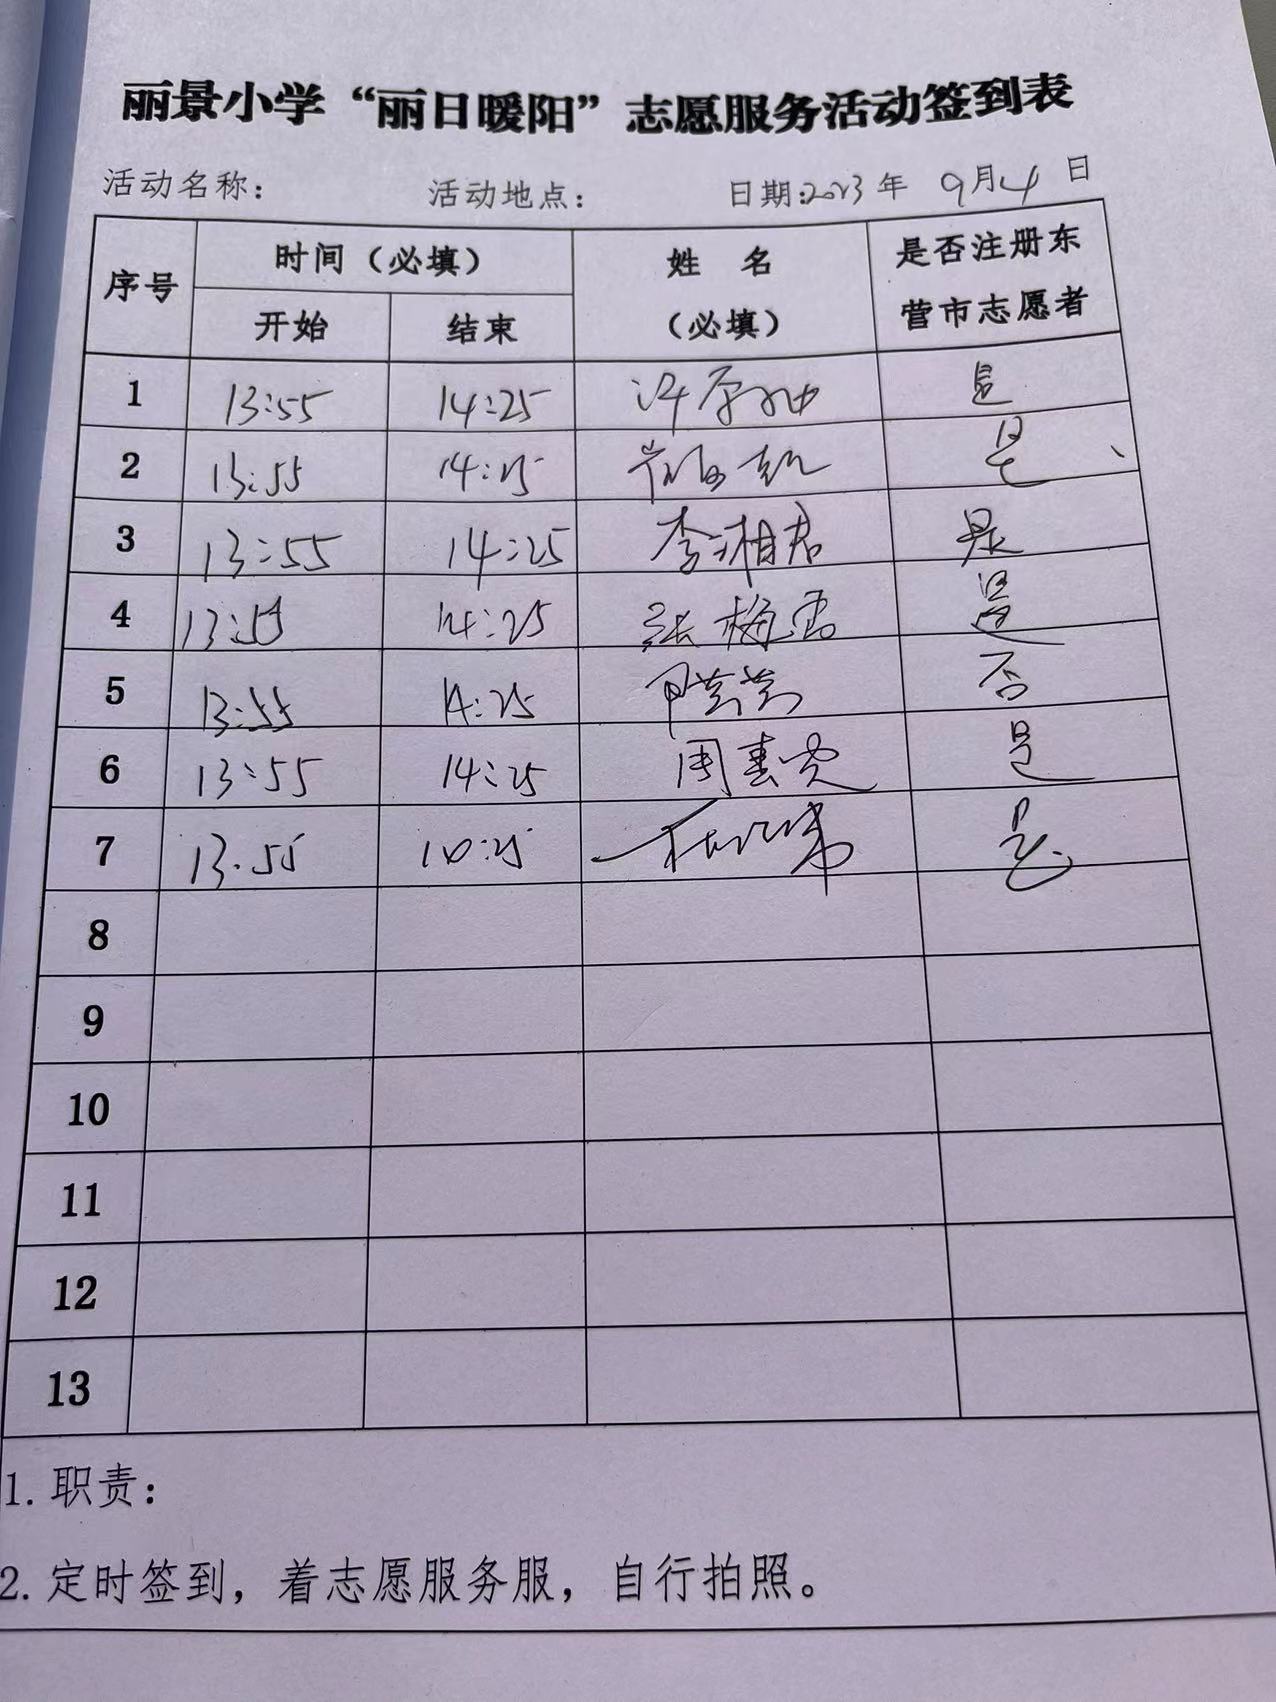 丽景小学“丽日暖阳”志愿服务活动签到表
活动名称： 活动地点： 日期:2023年 9月4日
序号 时间（必填） 姓 名（必填） 是否注册东营市志愿者
开始 结束
1 13:55 14:25 是
2 13:55 14:25 是
3 13:55 14:25 李湘君 是
4 13:55 14:25 张梅 是
5 13:55 14:25 否
6 13:55 14:25 周春雯 是
7 13.55 是
8
9
10
11
12
13
1.职责：
2.定时签到，着志愿服务服，自行拍照。